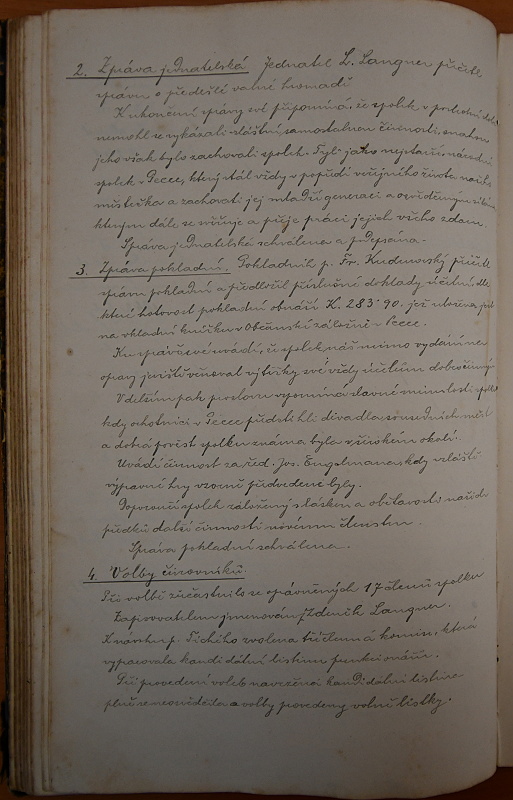 2. Zpráva jednatelská Jednatel L. Langner přečetl
zprávu o předešlé valné hromadě
K ukončení zprávy své připomíná, že spolek v poslední době
nemohl se vykázati zvláštní samostatnou činností, snahou
jeho však bylo zachovati spolek. Tyl jako nejstarší národní
spolek v Pecce, který stál vždy v popředí veřejného života našeho
městečka a zachovati jej mladší generaci a osvědčeným silám
kterým dále se svěřuje a přeje práci jejich všeho zdaru.
Zpráva jednatelská schválena a podepsána.
3. Zpráva pokladní. Pokladník p. Fr. Kudrnovský přečetl
zprávu pokladní a předložil příslušné doklady účetní, dle
které hotovost pokladní obnáší K. 283·90. jež uložena jest
na vkladní knížku v Občanské záložně v Pecce.
Ku zprávě své uvádí, že spolek náš mimo vydání na
opravy jeviště věnoval výtěžky své vždy účelům dobročinným
V dalším pak proslovu vzpomíná slavné minulosti spolku
kdy ochotníci z Pecce předstihli divadla sousedních měst
a dobrá pověst spolku známa byla v širokém okolí.
Uvádí činnost za řed. Jos. Engelmana, kdy zvláště
výpravné hry vzorně předvedeny byly.
Doporoučí spolek založený s láskou a obětavostí našich
předků další činnosti novému členstvu.
Zpráva pokladní schválena.
4. Volby činovníků.
Při volbě zúčastnilo se oprávněných 17 členů spolku
Zapisovatelem jmenován Zdeněk Langner.
K návrhu p. Tichého zvolena tříčlenná komise, která
vypracovala kandidátní listinu funkcionářů.
Při provedení voleb navržená kandidátní listina
plně se neosvědčila a volby provedeny volní lístky.